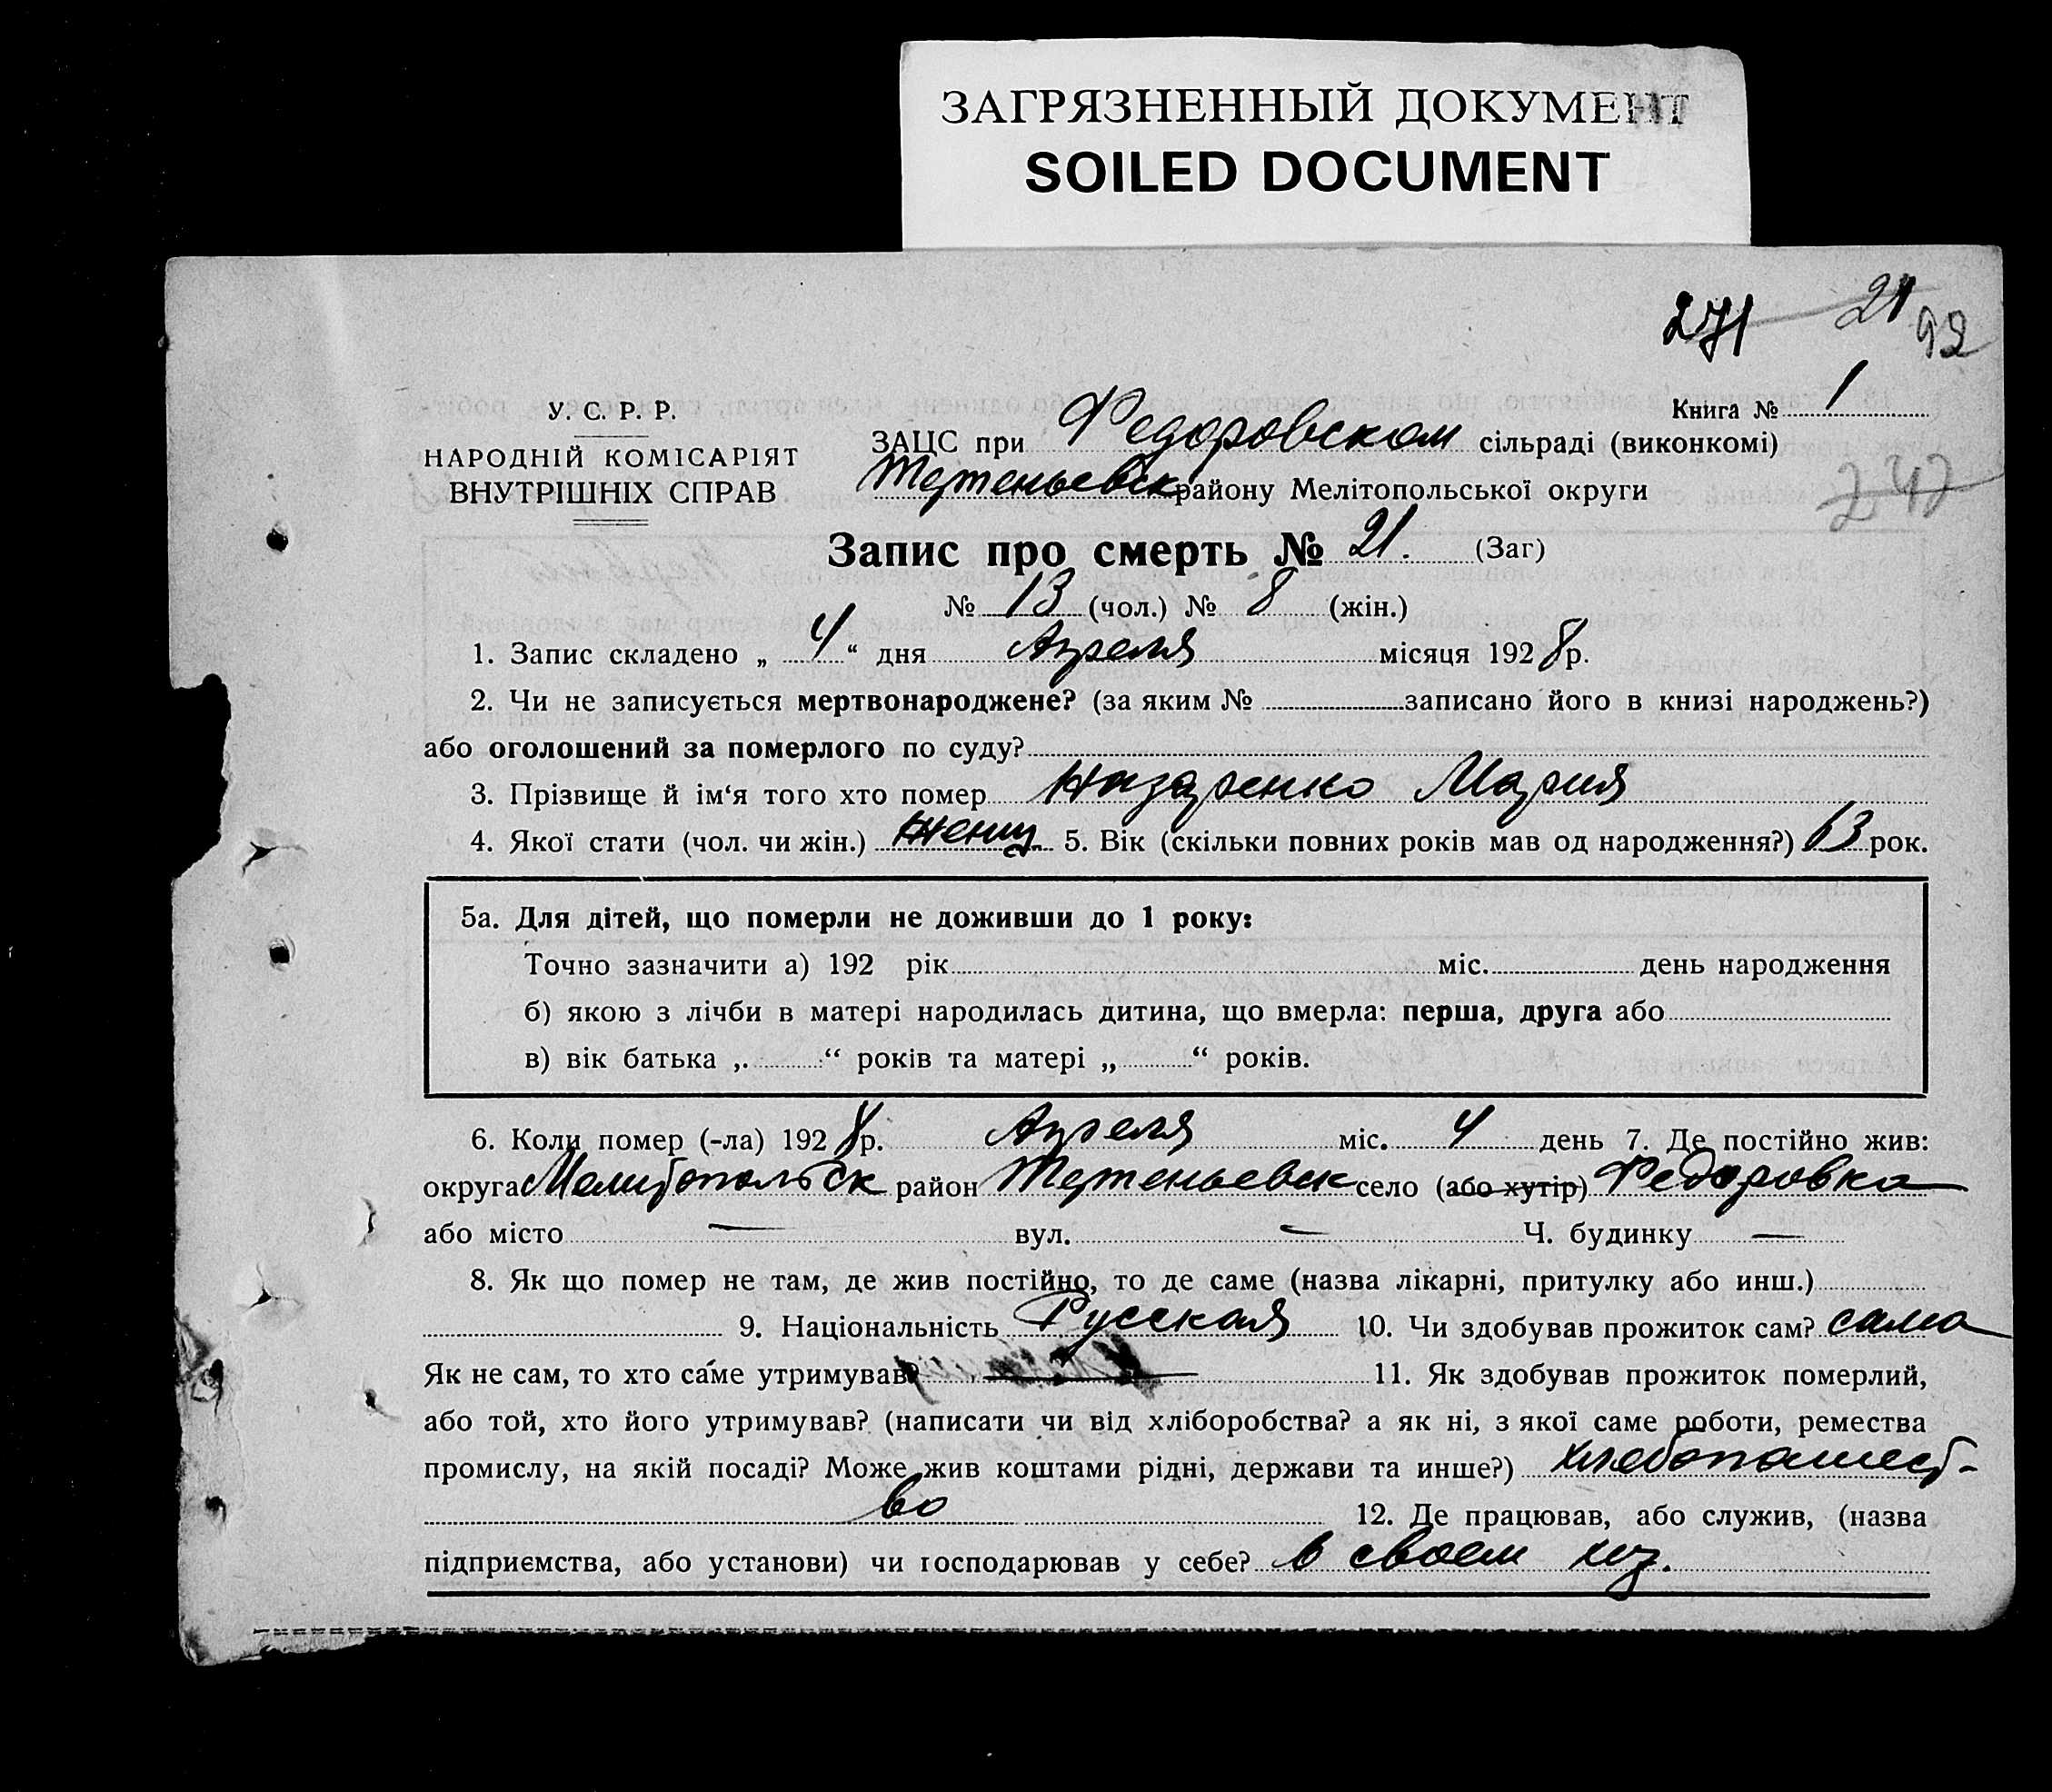 ЗАГРЯЗНЕННЫЙ ДОКУМЕНТ
SOILED DOCUMENT
271 21
92
У. С. Р. Р.
НАРОДНІЙ КОМІСАРІЯТ
ВНУТРІШНІХ СПРАВ
Книга № 1
ЗАЦС при Федоровском сільраді (виконкомі)
району Мелітопольської округи
242
Запис про смерть № 21. (Заг)
№ 13 (чол.) № 8 (жін.)
1. Запис складено „ 4 “ дня Апреля місяця 1928 р.
2. Чи не записується мертвонароджене? (за яким № записано його в книзі народжень?)
або оголошений за померлого по суду?
3. Прізвище й ім‘я того хто помер Назаренко Мария
4. Якої стати (чол. чи жін.) женщ. 5. Вік (скільки повних років мав од народження?) 63 рок.
5а. Для дітей, що померли не доживши до 1 року:
Точно зазначити а) 192 рік міс. день народження
б) якою з лічби в матері народилась дитина, що вмерла: перша, друга або
в) вік батька „ “ років та матері „ “ років.
6. Коли помер (-ла) 1928 р. Апреля міс. 4 день 7. Де постійно жив:
округа Мелитопольск район село (або хутір) Федоровка
або місто — вул. — Ч. будинку —
8. Як що помер не там, де жив постійно, то де саме (назва лікарні, притулку або инш.)
9. Національність Русская 10. Чи здобував прожиток сам? сама
Як не сам, то хто саме утримував? 11. Як здобував прожиток померлий,
або той, хто його утримував? (написати чи від хліборобства? а як ні, з якої саме роботи, ремества
промислу, на якій посаді? Може жив коштами рідні, держави та инше?) хлебопашест-
во 12. Де працював, або служив, (назва
підприємства, або установи) чи господарював у себе? в своем хоз.